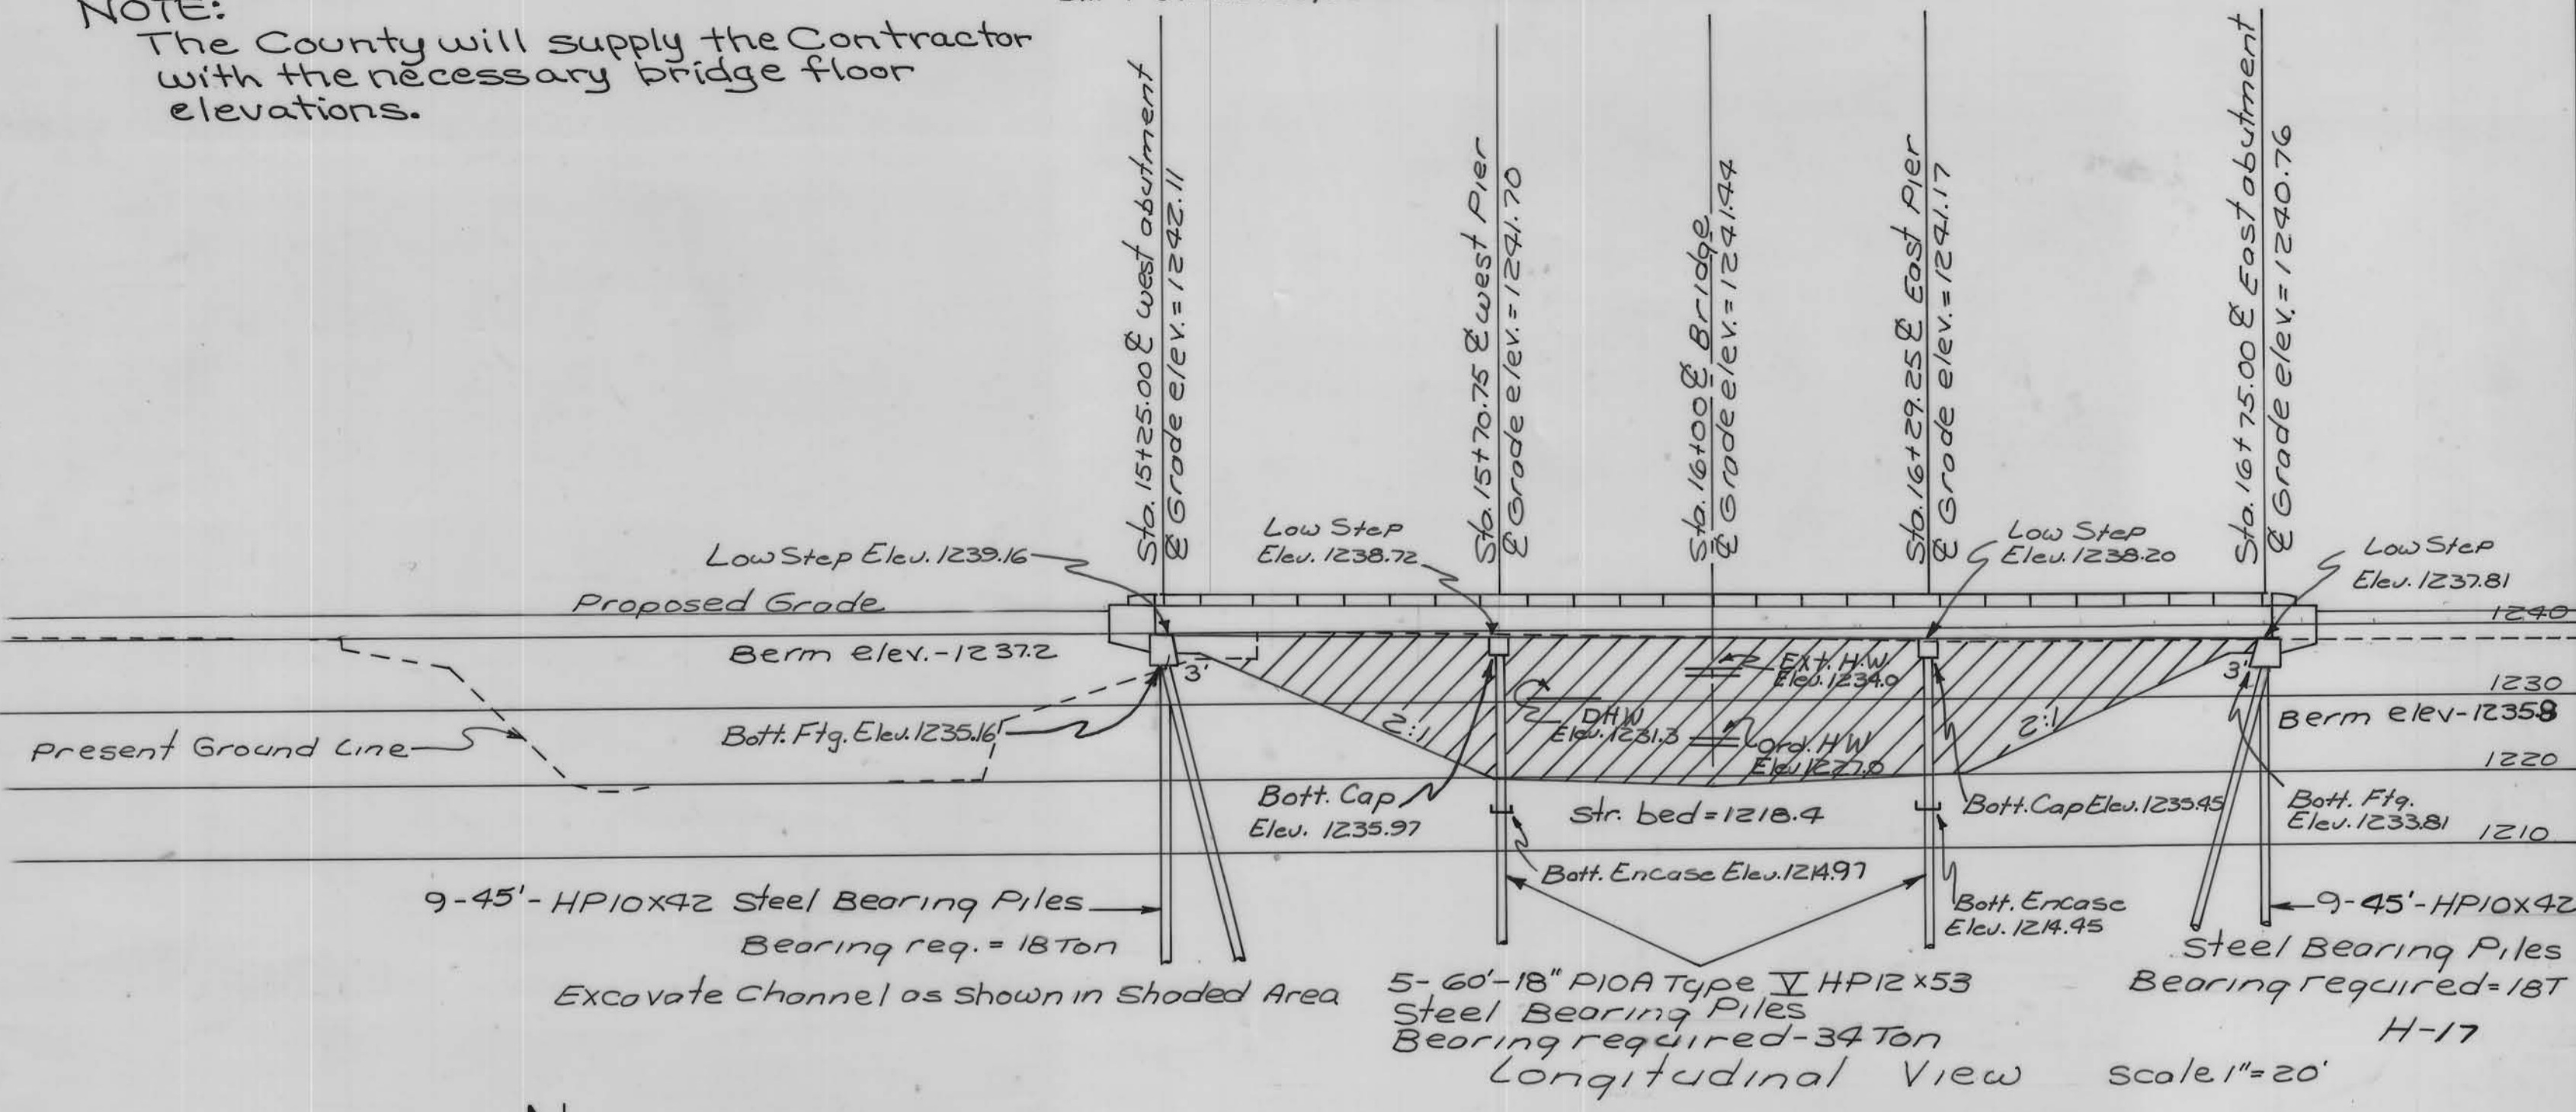 NOTE:
The County will supply the Contractor
with the necessary bridge floor
elevations.
Sta. 15+25.00 ℄ west abutment
℄ Grade elev. = 1242.11
Sta. 15+70.75 ℄ west Pier
℄ Grade elev. = 1241.70
Sta. 16+00 ℄ Bridge
℄ Grade elev. = 1241.44
Sta. 16+29.25 ℄ East Pier
℄ Grade elev. = 1241.17
Sta. 16+75.00 ℄ East abutment
℄ Grade elev. = 1240.76
Low Step Elev. 1239.16
Low Step
Elev. 1238.72
Low Step
Elev. 1238.20
Low Step
Elev. 1237.81
Proposed Grade
1240
Berm elev.-1237.2
3'
Ext. H.W
Elev. 1234.0
3'
1230
Present Ground Line
Bott. Ftg. Elev. 1235.16
2:1
DHW
Elev. 1231.3
Ord. H W
Elev. 1227.0
2:1
Berm elev-1235.8
1220
Bott. Cap
Elev. 1235.97
Str. bed = 1218.4
Bott. Cap Elev. 1235.45
Bott. Ftg.
Elev. 1233.81
1210
Bott. Encase Elev. 1214.97
Bott. Encase
Elev. 1214.45
9-45'-HP10x42 Steel Bearing Piles
Bearing req. = 18 Ton
9-45'-HP10x42
Steel Bearing Piles
Bearing required=18T
Excavate Channel as Shown in Shaded Area
5-60'-18" P10A Type V HP12x53
Steel Bearing Piles
Bearing required-34 Ton
H-17
Longitudinal View
scale 1"=20'